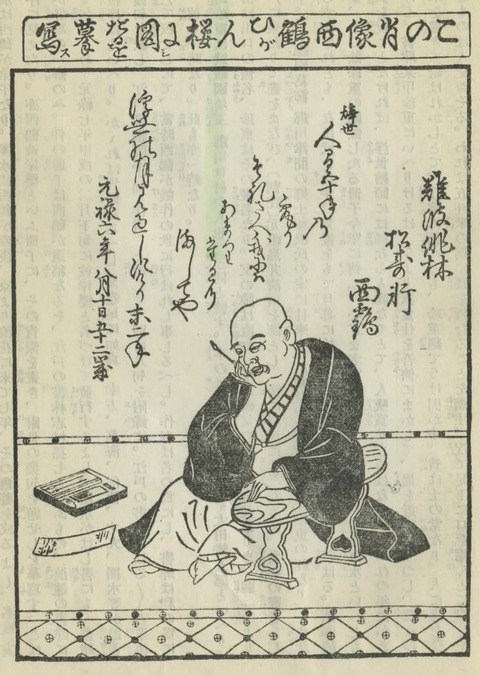 この肖像西鶴ひがん櫻に図
摹寫ス
難波俳林
松寿軒
西鶴
辞世
人間五十年の
究り
それさへ我には
あまりたるに
ましてや
浮世の月見過しにけり末二年
元禄六年八月十日五十二歳